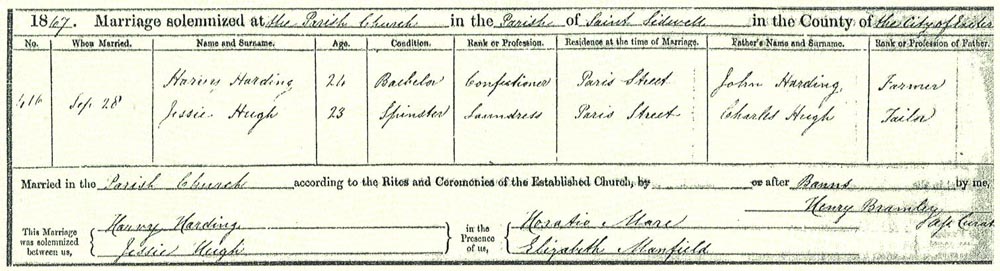 1867. Marriage solemnized at the Parish Church in the Parish of Saint Sidwell in the County of the City of Exeter
No. When Married. Name and Surname. Age. Condition. Rank or Profession. Residence at the time of Marriage. Father's Name and Surname. Rank or Profession of Father.
416 Sep 28 Harvey Harding 24 Bachelor Confectioner Paris Street John Harding Farmer
Jessie Hugh 23 Spinster Laundress Paris Street Charles Hugh Tailor
Married in the Parish Church according to the Rites and Ceremonies of the Established Church, by or after Banns by me,
Henry Bramley
This Marriage was solemnized between us, Harvey Harding in the Presence of us, Horatio Mare Curate
Jessie Heigh Elizabeth Manfield